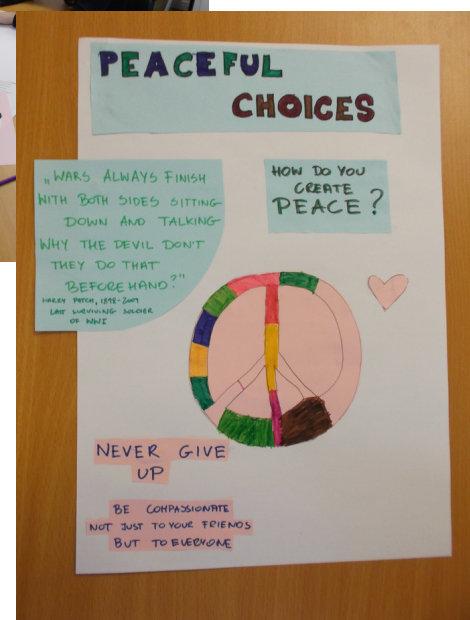 PEACEFUL
CHOICES
„WARS ALWAYS FINISH
WITH BOTH SIDES SITTING
DOWN AND TALKING
WHY THE DEVIL DON'T
THEY DO THAT
BEFOREHAND?"
HARRY PATCH, 1898-2009
LAST SURVIVING SOLDIER
OF WWI
HOW DO YOU
CREATE
PEACE?
NEVER GIVE
UP
BE COMPASSIONATE
NOT JUST TO YOUR FRIENDS
BUT TO EVERYONE